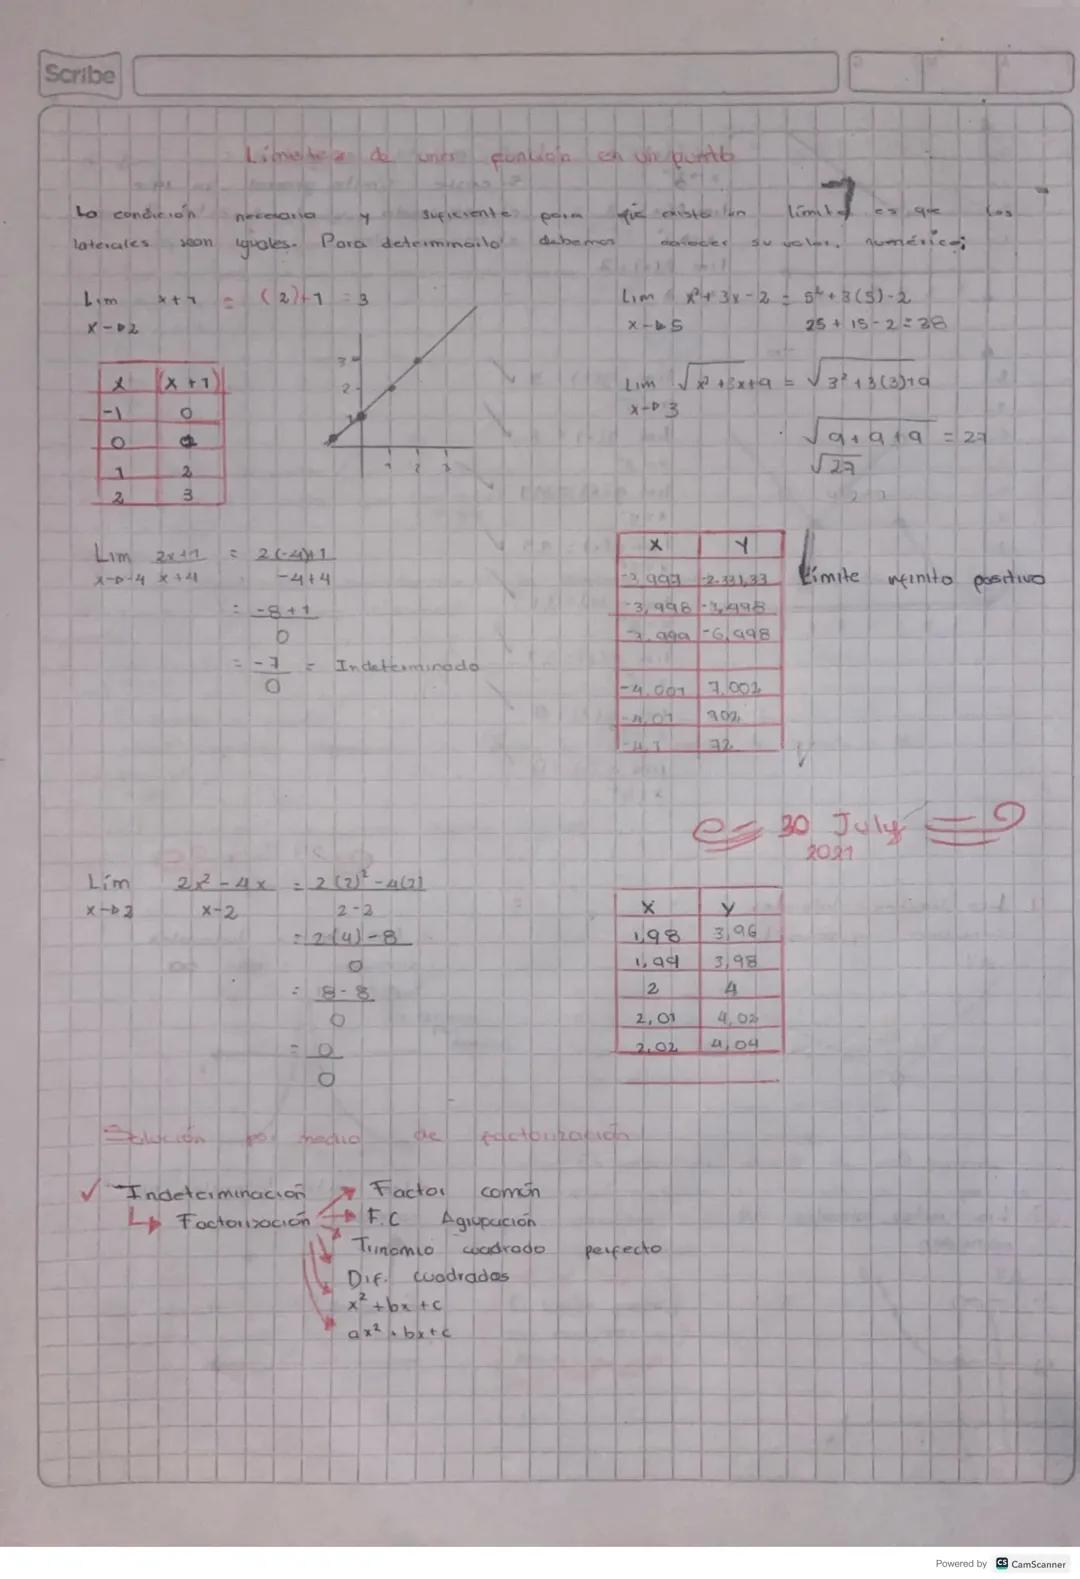 Scribe
Límites de una función en un punto
La condición necesaria y suficiente para que exista un límite es que los
laterales sean iguales. Para determinarlo debemos conocer su valor numérico;
Lim x+1 = (2)+1 = 3
x→2
x (x+1)
-1 0
0 1
1 2
2 3
3
2
1
1 2 3
Lim x²+3x-2 = 5²+3(5)-2
x→5 25+15-2=38
Lim √x²+3x+9 = √3²+3(3)+9
x→3
√9+9+9 = 27
√27
Lim 2x+1 = 2(-4)+1
x→-4 x+4 -4+4
= -8+1
0
= -7 = Indeterminado
0
x y
-3,998 -3,498
-3,999 -6,998
-4,001 7,002
-4,01 702
-4,1 72
Límite infinito positivo
30 July
2021
Lim 2x²-4x = 2(2)²-4(2)
x→2 x-2 2-2
= 2(4)-8
0
= 8-8
0
= 0
0
x y
1,98 3,96
1,99 3,98
2 4
2,01 4,02
2,02 4,04
Solución por medio de factorización
✓ Indeterminación → Factor común
↳ Factorización → F.C Agrupación
Trinomio cuadrado perfecto
Dif. cuadrados
x²+bx+c
ax²+bx+c
Powered by CS CamScanner